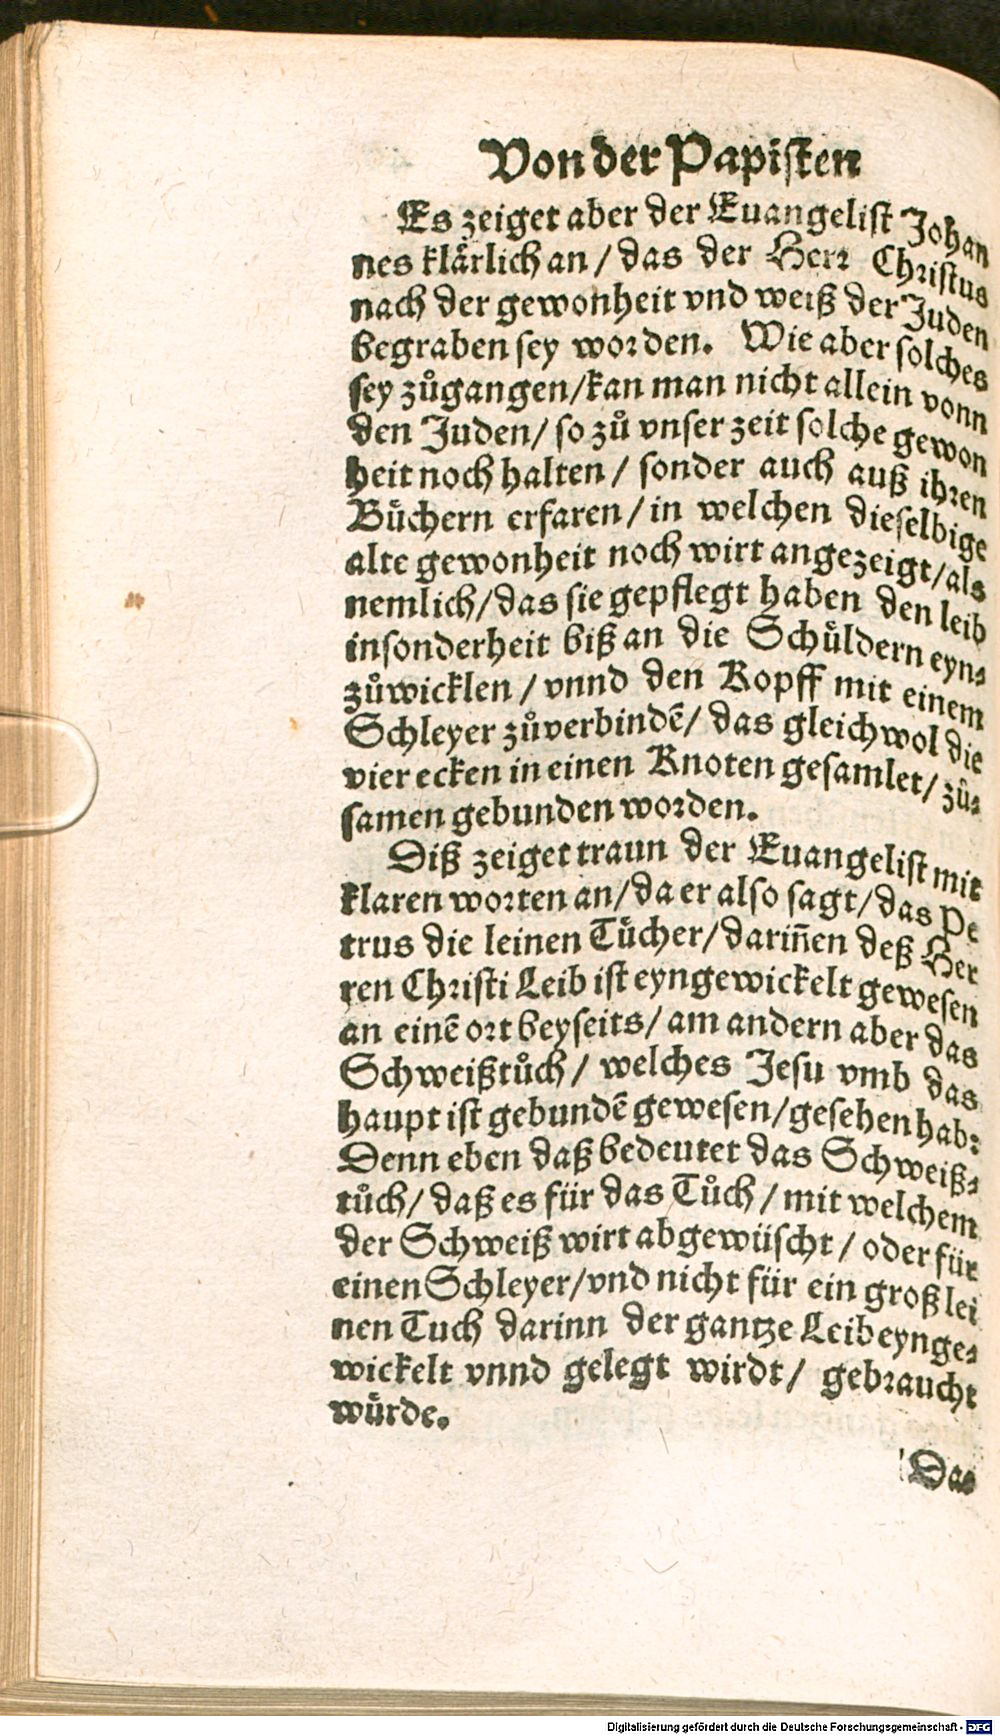 Von der Papisten
Es zeiget aber der Euangelist Johan
nes klaͤrlich an / das der Herr Christus
nach der gewonheit vnd weiß der Juden
begraben sey worden. Wie aber solches
sey zůgangen / kan man nicht allein vonn
den Juden / so zů vnser zeit solche gewon
heit noch halten / sonder auch auß ihren
Buͤchern erfaren / in welchen dieselbige
alte gewonheit noch wirt angezeigt / als
nemlich / das sie gepflegt haben den leib
insonderheit biß an die Schuͤldern eyn⸗
zůwicklen / vnnd den Kopff mit einem
Schleyer zůverbindẽ / das gleichwol die
vier ecken in einen Knoten gesamlet / zů⸗
samen gebunden worden.
Diß zeiget traun der Euangelist mit
klaren worten an / da er also sagt / das Pe
trus die leinen Tuͤcher / dariñen deß Her
ren Christi Leib ist eyngewickelt gewesen
an einẽ ort beyseits / am andern aber das
Schweißtůch / welches Jesu vmb das
haupt ist gebundẽ gewesen / gesehen hab:
Denn eben daß bedeutet das Schweiß⸗
tůch / daß es für das Tůch / mit welchem
der Schweiß wirt abgewüscht / oder für
einen Schleyer / vnd nicht für ein groß lei
nen Tuch darinn der gantze Leib eynge⸗
wickelt vnnd gelegt wirdt / gebraucht
wuͤrde.
Das
Digitalisierung gefördert durch die Deutsche Forschungsgemeinschaft - DFG